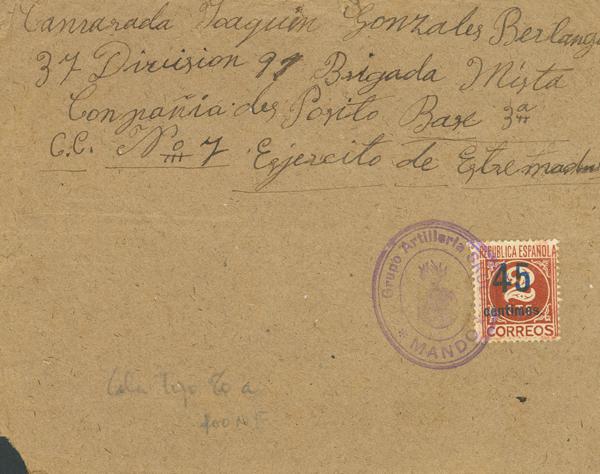 Camarada Joaquin Gonzales Berlanga
37 Division 91 Brigada Mista
Conpañia des Posito Base 3ª
C.C. Nº 7 Esjercito de Estremadu
Grupo Artilleria
MANDO
REPUBLICA ESPAÑOLA
45
2
centimos
CORREOS